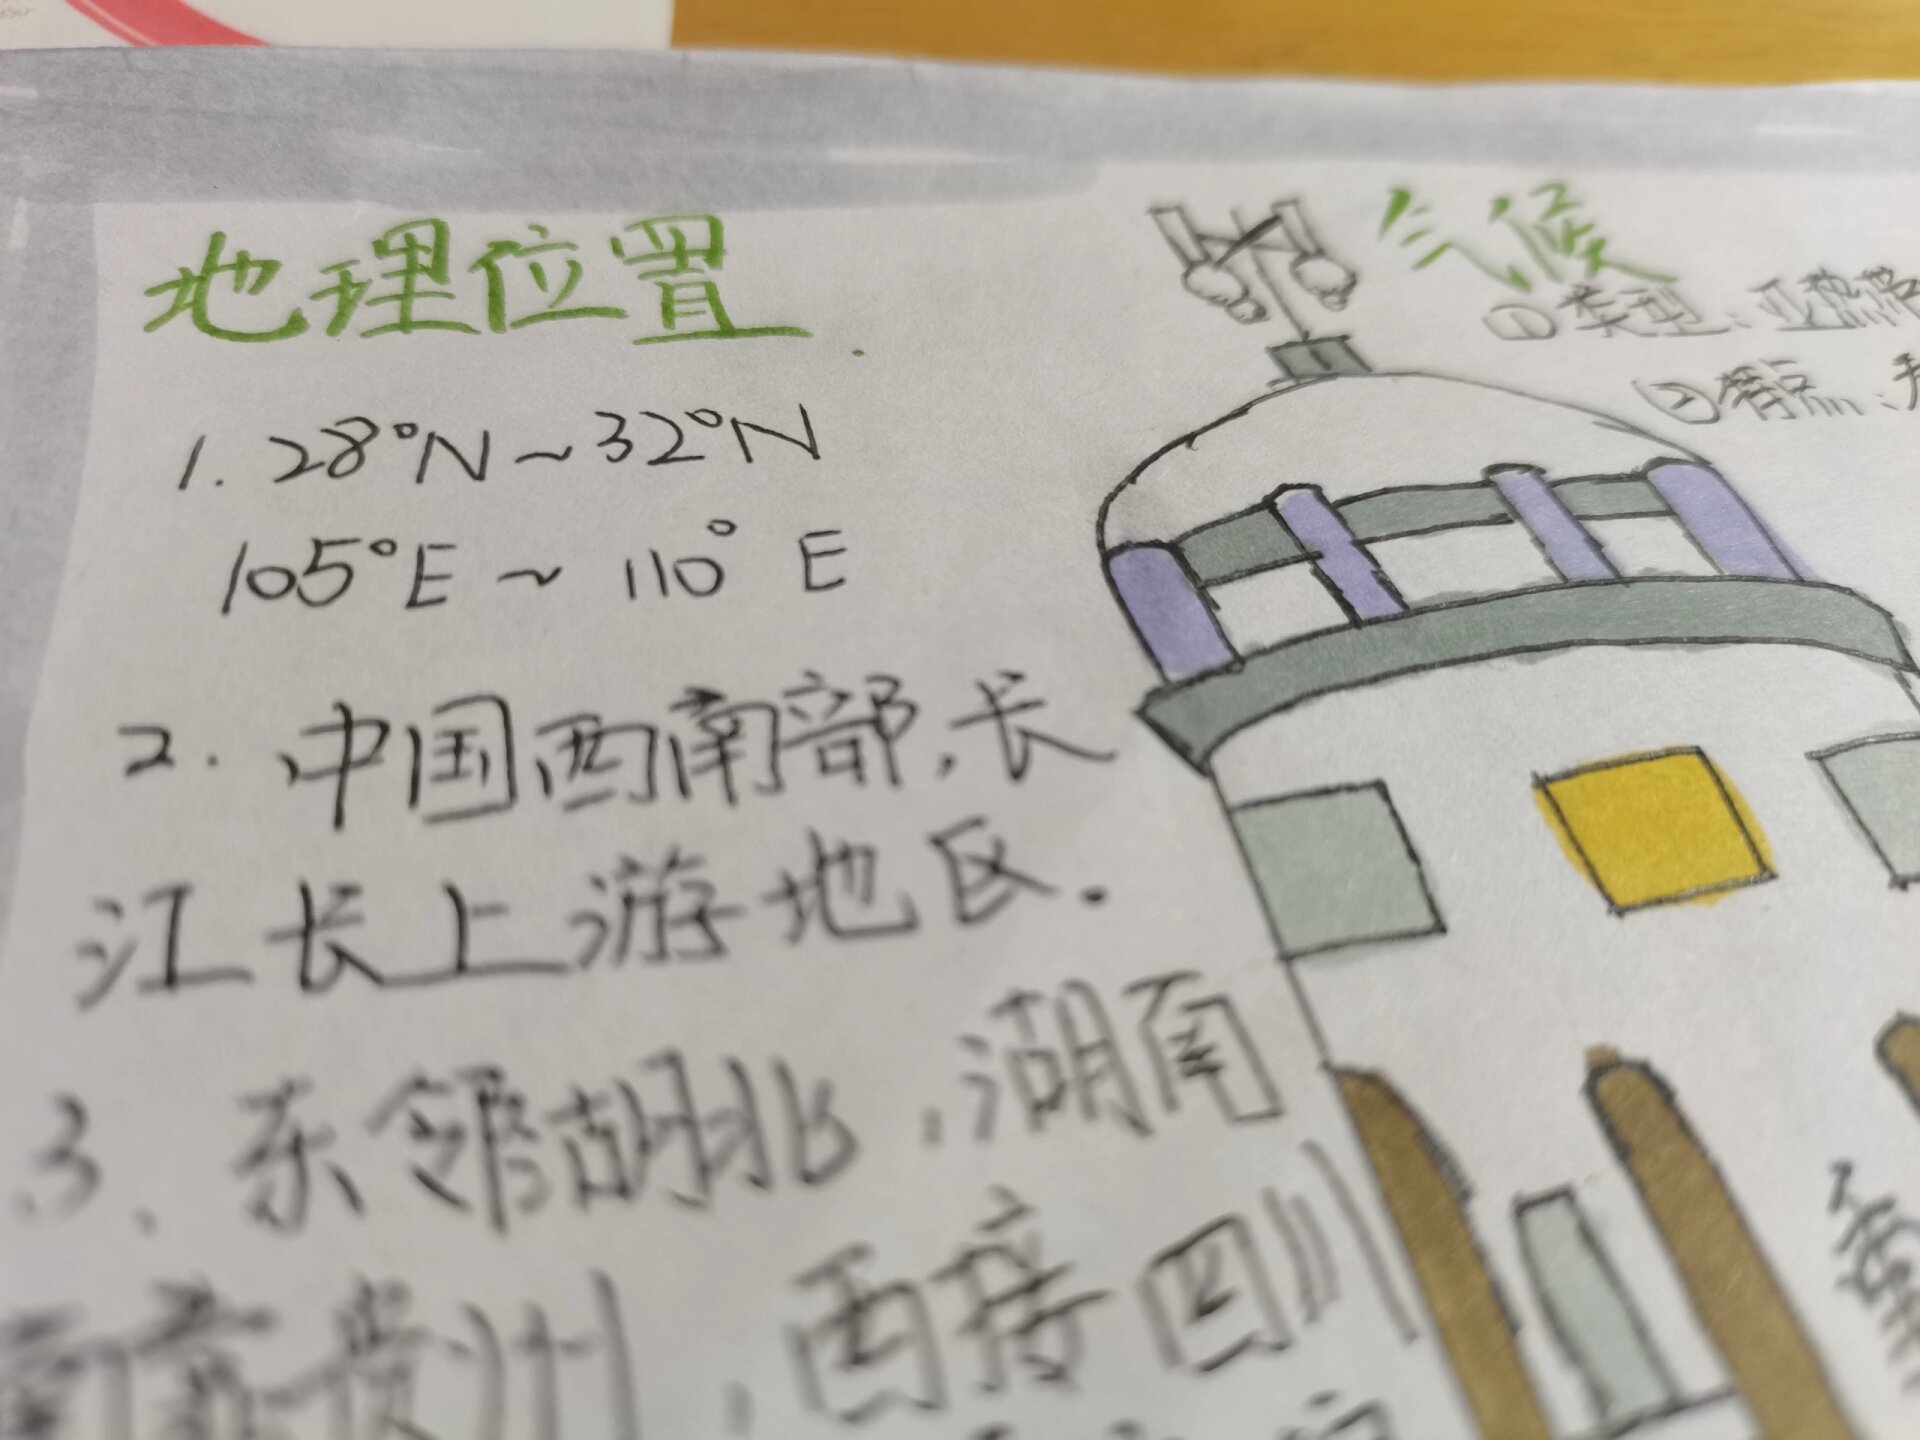 地理位置.
1. 28°N ~ 32°N
105°E ~ 110° E
2. 中国西南部,长
江长上游地区.
3、东邻胡北,湖南
南京贵州,西接四川
气候
①类型:亚热带
②特点: